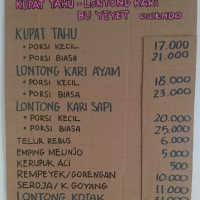 KUPAT TAHU - LONTONG KARI
BU YEYET CICENDO
KUPAT TAHU
• PORSI KECIL 17.000
• PORSI BIASA 21.000
LONTONG KARI AYAM
• PORSI KECIL 18.000
• PORSI BIASA 23.000
LONTONG KARI SAPI
• PORSI KECIL 20.000
• PORSI BIASA 25.000
TELUR REBUS 6.000
EMPING MELINJO 5.000
KERUPUK ACI 500
REMPEYEK/GORENGAN 10.000
SEROJA/K.GOYANG 11.000
LONTONG KOTAK